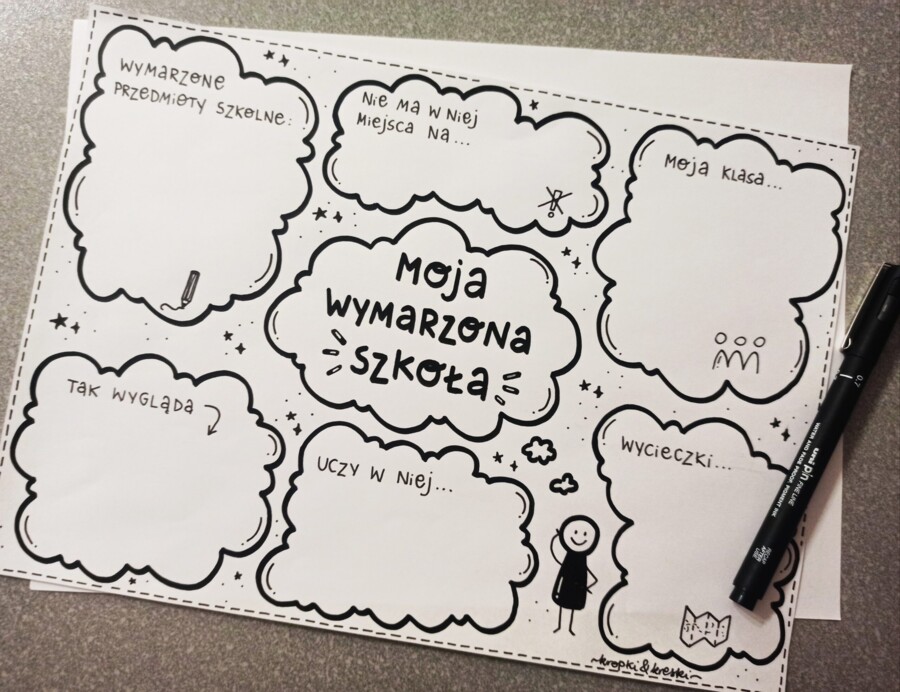 WYMARZONE
PRZEDMIOTY SZKOLNE:
Nie MA W Niej
MIEJSCA NA...
MOJA KLASA...
MOJA
WYMARZONA
SZKOŁA
TAK WYGLĄDA
UCZY W NIEJ...
WYCIECZKI...
~kropki&kreski~
0.7
uni pin FINE LINE
WATER AND FADE PROOF PIGMENT INK